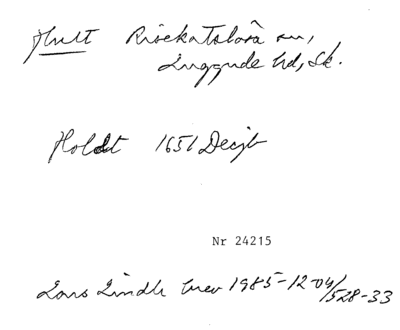 Hult Risekatslösa sn,
Luggude hd, Sk.
Holdt 1651 Decjb
Nr 24215
Lars Lindh brev 1985-12-04/528-33